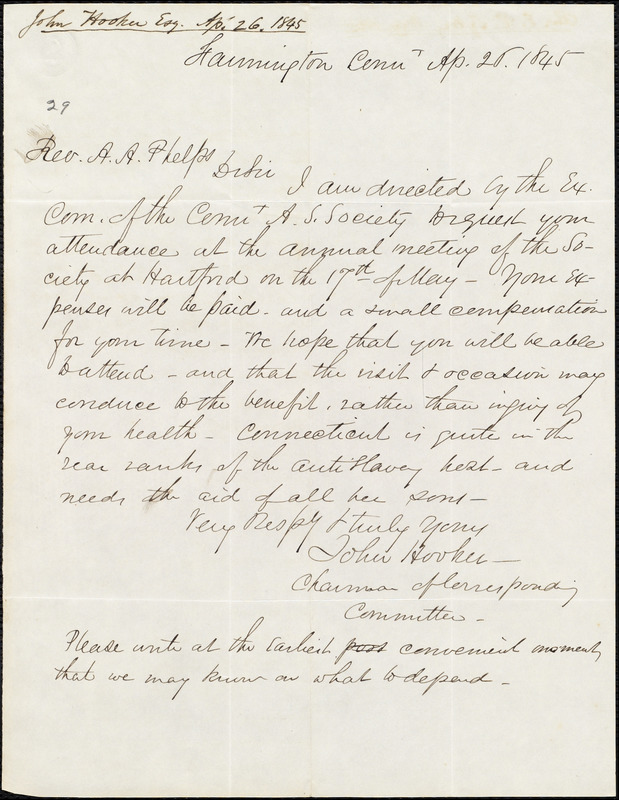 John Hooker Esq. Ap. 26. 1845
Farmington Connt Ap. 26. 1845
29
Rev. A. A. Phelps
Dr Sir
I am directed by the Ex.
Com. of the Connt A. S. Society to request your
attendance at the annual meeting of the So-
ciety at Hartford on the 17th of May - Your Ex-
penses will be paid - and a small compensation
for your time - We hope that you will be able
to attend - and that the visit & occasion may
conduce to the benefit, rather than injury of
your health - Connecticut is quite in the
rear ranks of the AntiSlavery host - and
needs the aid of all her sons -
Very Respy & truly Yours
John Hooker -
Chairman of Corresponding
Committee -
Please write at the Earliest post convenient moment,
that we may know on what to depend -